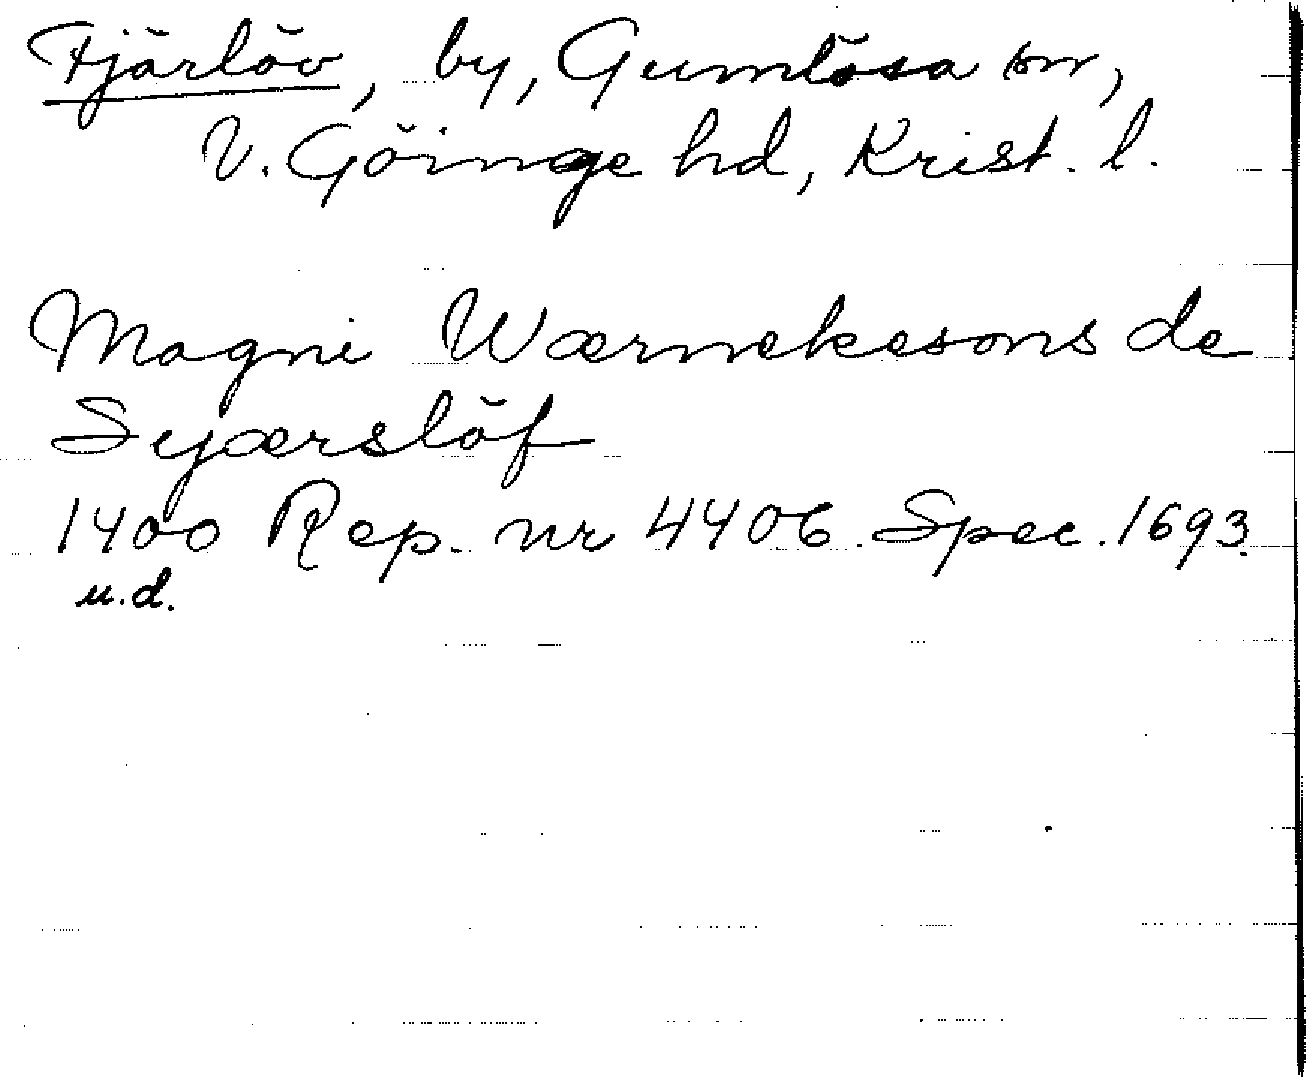 Fjärlöv, by, Gumlösa sn,
V. Göinge hd, Krist. l.
Magni Wærnekesons de
Syærslöf
1400 Rep. nr 4406. Spec. 1693.
u.d.